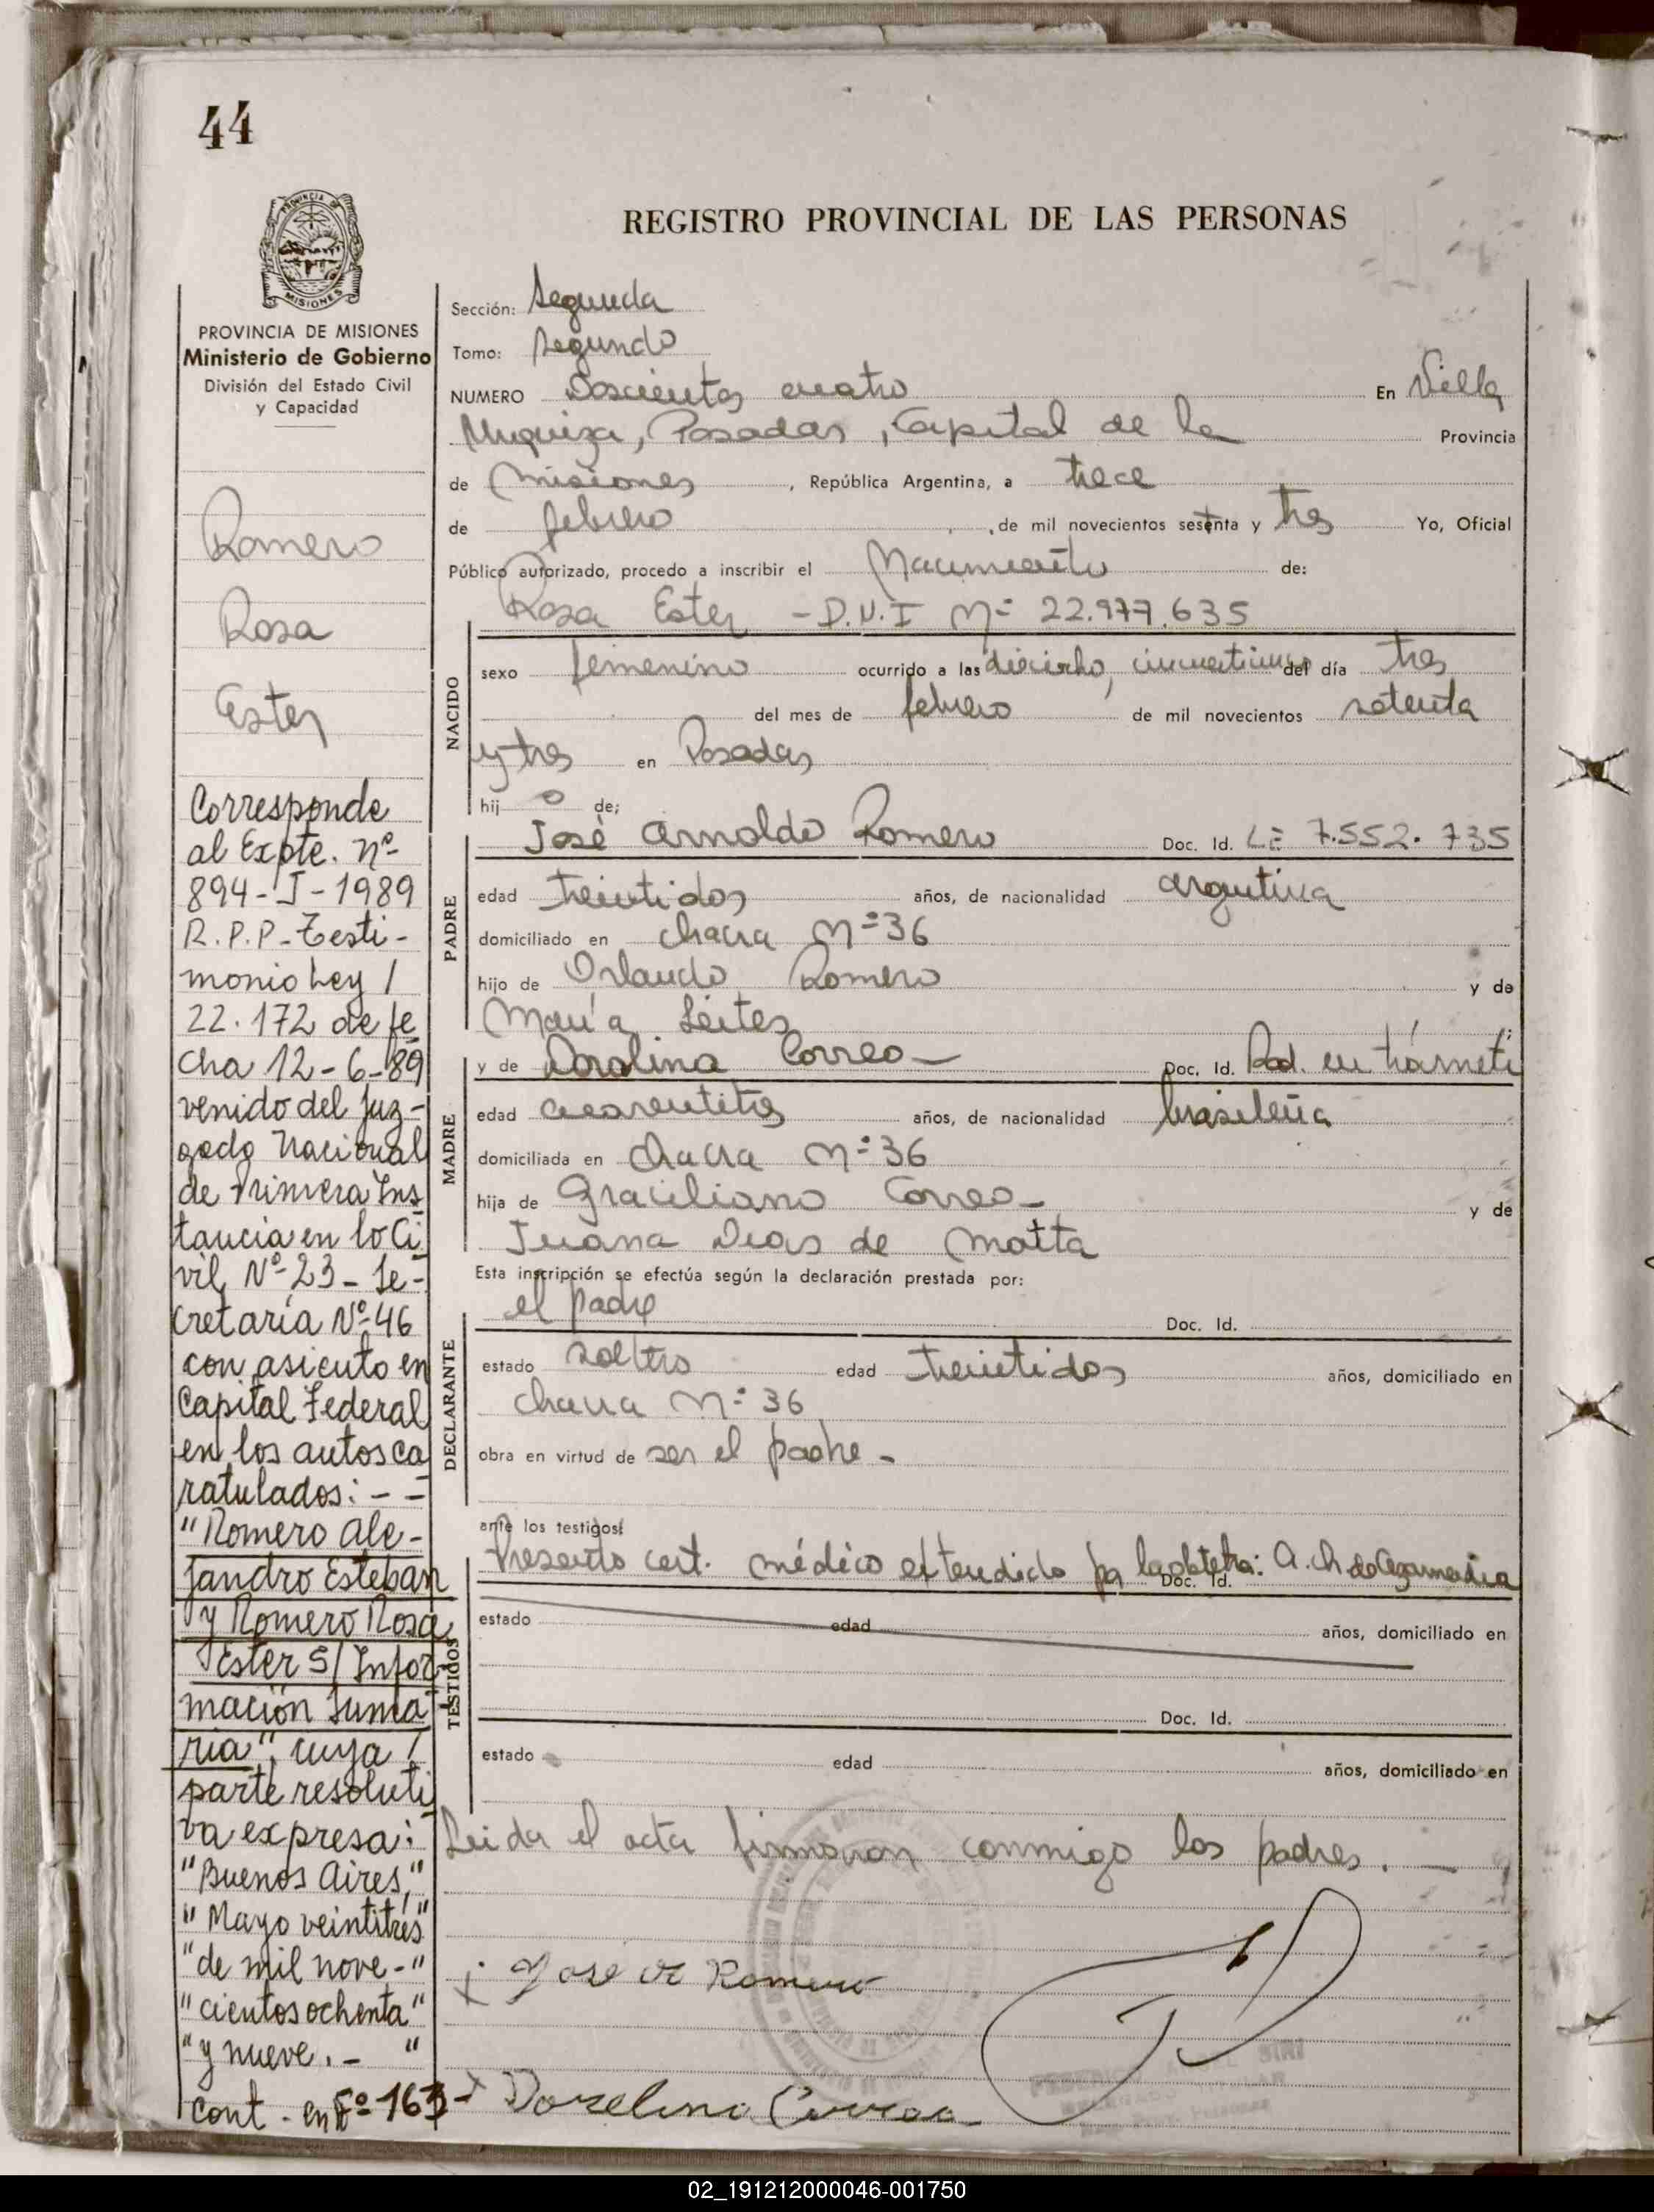 44
PROVINCIA DE MISIONES
REGISTRO PROVINCIAL DE LAS PERSONAS
PROVINCIA DE MISIONES
Ministerio de Gobierno
División del Estado Civil
y Capacidad
Romero
Rosa
Ester
Corresponde
al Expte. nº
894-J-1989
R.P.P-Testi-
monio Ley /
22.172 de fe
cha 12-6-89
venido del Juz-
gado Nacional
de Primera Ins
tancia en lo Ci
vil Nº 23- Se-
cretaría Nº 46
con asiento en
Capital Federal
en los autos ca
ratulados: - -
"Romero Ale-
jandro Esteban
y Romero Rosa
Ester S/ Infor
mación Suma
ria", cuya /
parte resoluti
va expresa:
"Buenos Aires,"
"Mayo veintitrés"
"de mil nove-"
"cientos ochenta"
"y nueve.- "
Cont. en Fº 163-
Sección: Segunda
Tomo: Segundo
NUMERO Doscientos cuatro En Villa
Urquiza, Posadas, Capital de la Provincia
de Misiones, República Argentina, a trece
de febrero, de mil novecientos setenta y tres Yo, Oficial
Público autorizado, procedo a inscribir el Nacimiento de:
Rosa Ester - D.N.I Nº 22.977.635
NACIDO
sexo femenino ocurrido a las dieciocho, del día tres
del mes de febrero de mil novecientos setenta
y tres en Posadas
hij o de;
PADRE
José Arnoldo Romero Doc. Id. LE 7.552.735
edad treintidos años, de nacionalidad argentina
domiciliado en chacra Nº 36
hijo de Orlando Romero y de
María Leites
MADRE
y de Doralina Correo- Doc. Id. Rad. en trámite
edad cuarentitres años, de nacionalidad brasileña
domiciliada en chacra Nº 36
hija de Graciliano Correo- y de
Juana Dias de Motta
Esta inscripción se efectúa según la declaración prestada por:
DECLARANTE
el padre Doc. Id.
estado soltero edad treintidos años, domiciliado en
chacra Nº 36
obra en virtud de ser el padre-
ante los testigos:
TESTIDOS
Presento cert. médico extendido por la obstetra: A. Ch de
Doc. Id.
estado edad años, domiciliado en
Doc. Id.
estado edad años, domiciliado en
Leida el acta firmaron conmigo los padres. -
x Jose A Romero
x Dorelina Correa
02_191212000046-001750